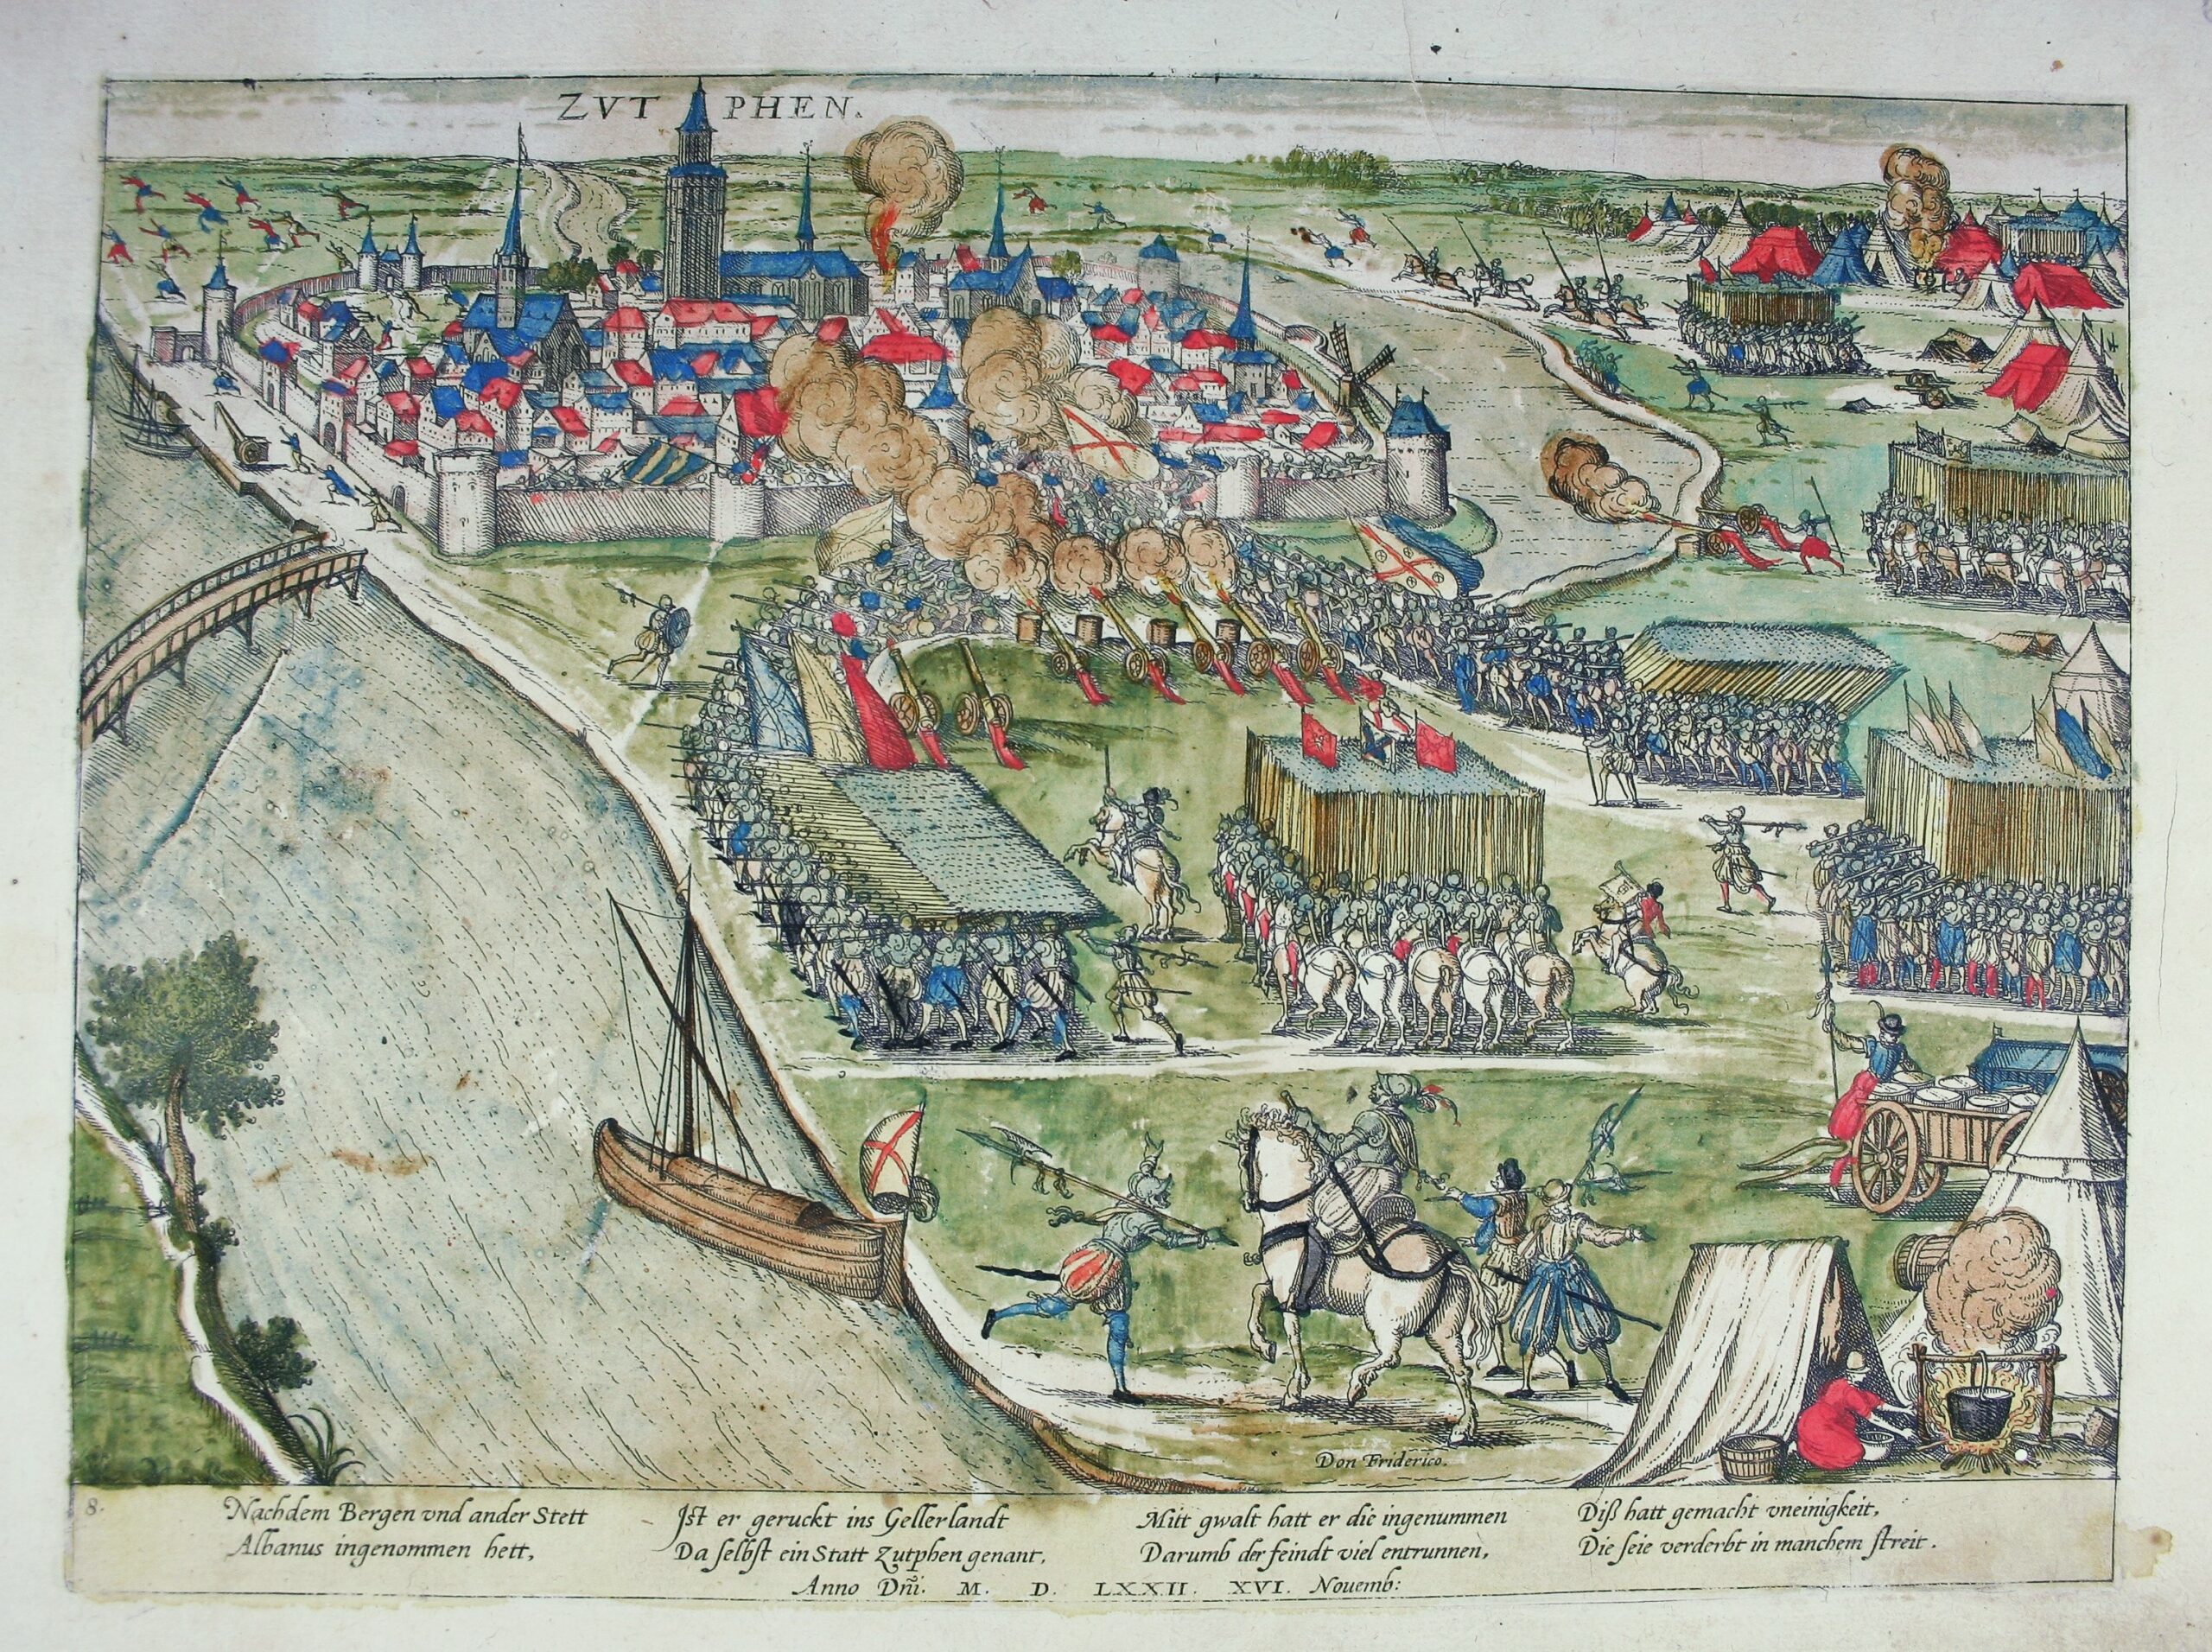 ZVTPHEN.
Don Friderico.
8.
Nachdem Bergen vnd ander Stett
Albanus ingenommen hett,
Jst er geruckt ins Gellerlandt
Da selbst ein Statt Zutphen genant,
Mitt gwalt hatt er die ingenummen
Darumb der feindt viel entrunnen,
Diß hatt gemacht vneinigkeit,
Die seie verderbt in manchem streit.
Anno Dñi. M. D. LXXII. XVI. Nouemb: